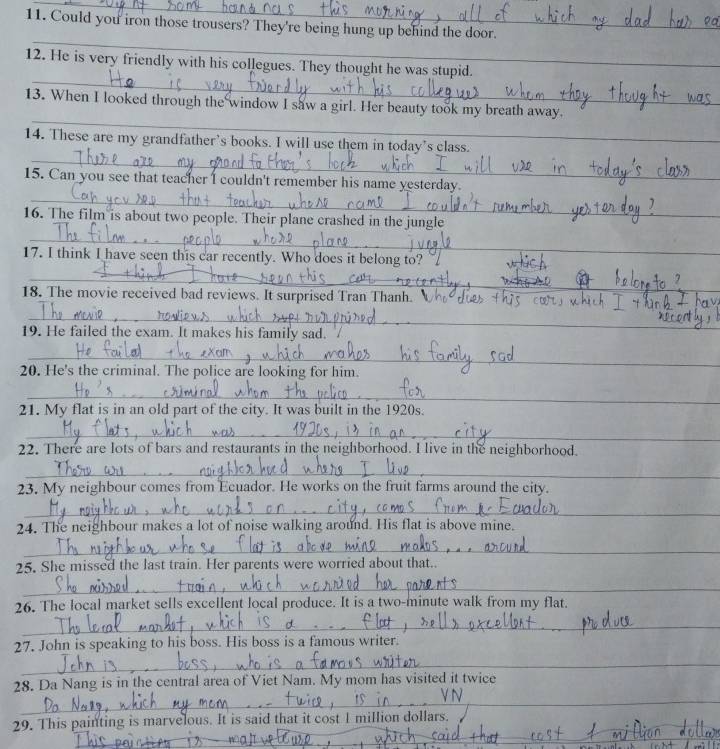 some bananas this morning, all of which my dad has ea
11. Could you iron those trousers? They're being hung up behind the door.
12. He is very friendly with his collegues. They thought he was stupid.
He is very friendly with his collegues whom they thought was
13. When I looked through the window I saw a girl. Her beauty took my breath away.
14. These are my grandfather's books. I will use them in today's class.
These are my grandfather's book which I will use in today's class
15. Can you see that teacher I couldn't remember his name yesterday.
Can you see that teacher whose name I couldn't remember yesterday?
16. The film is about two people. Their plane crashed in the jungle
The film ... people whose plane ... jungle
17. I think I have seen this car recently. Who does it belong to?
which
I think I have seen this car recently, belong to?
18. The movie received bad reviews. It surprised Tran Thanh. Who does this car, which I think I hav
The movie ... reviews which surprised recently, b
19. He failed the exam. It makes his family sad.
He failed the exam, which makes his family sad
20. He's the criminal. The police are looking for him.
He's ... criminal whom the police ... for
21. My flat is in an old part of the city. It was built in the 1920s.
My flats, which was ... 1920s, is in an ... city
22. There are lots of bars and restaurants in the neighborhood. I live in the neighborhood.
There are ... neighborhood where I live
23. My neighbour comes from Ecuador. He works on the fruit farms around the city.
My neighbour, who works on ... city, comes from Ecuador
24. The neighbour makes a lot of noise walking around. His flat is above mine.
The neighbour whose flat is above mine makes ... around
25. She missed the last train. Her parents were worried about that..
She missed ... train, which worried her parents
26. The local market sells excellent local produce. It is a two-minute walk from my flat.
The local market, which is a ... flat, sells excellent ... produce
27. John is speaking to his boss. His boss is a famous writer.
John is ... boss, who is a famous writer
28. Da Nang is in the central area of Viet Nam. My mom has visited it twice
Da Nang, which my mom ... twice, is in ... VN
29. This painting is marvelous. It is said that it cost 1 million dollars.
This painting is , which said that cost 1 million dollars